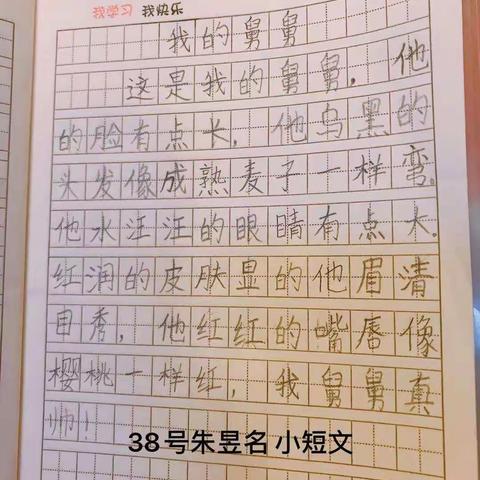 我学习 我快乐
我的舅舅
这是我的舅舅，他
的脸有点长，他乌黑的
头发像成熟麦子一样弯。
他水汪汪的眼睛有点大。
红润的皮肤显的他眉清
目秀，他红红的嘴唇像
樱桃一样红，我舅舅真
帅！
38号朱昱名 小短文